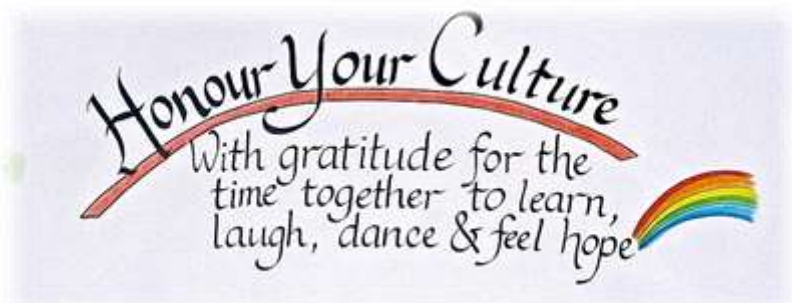 Honour Your Culture
With gratitude for the
time together to learn,
laugh, dance & feel hope